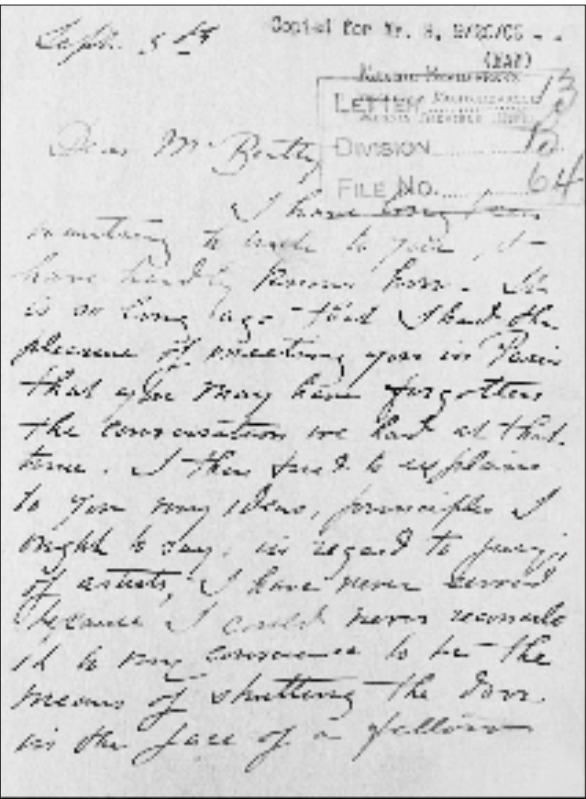 Sept. 5th
Copied for Mr. H.
LETTER 13
DIVISION B
FILE NO. 64
Dear Mr Beatty
I have long been
meaning to write to you, &
have hardly known how. It
is so long ago that I had the
pleasure of meeting you in Paris
that you may have forgotten
the conversation we had at that
time. I then tried to explain
to you my ideas, principles I
ought to say, in regard to jurys
of artists, I have never served
because I could never reconcile
it to my conscience to be the
means of shutting the door
in the face of a fellow